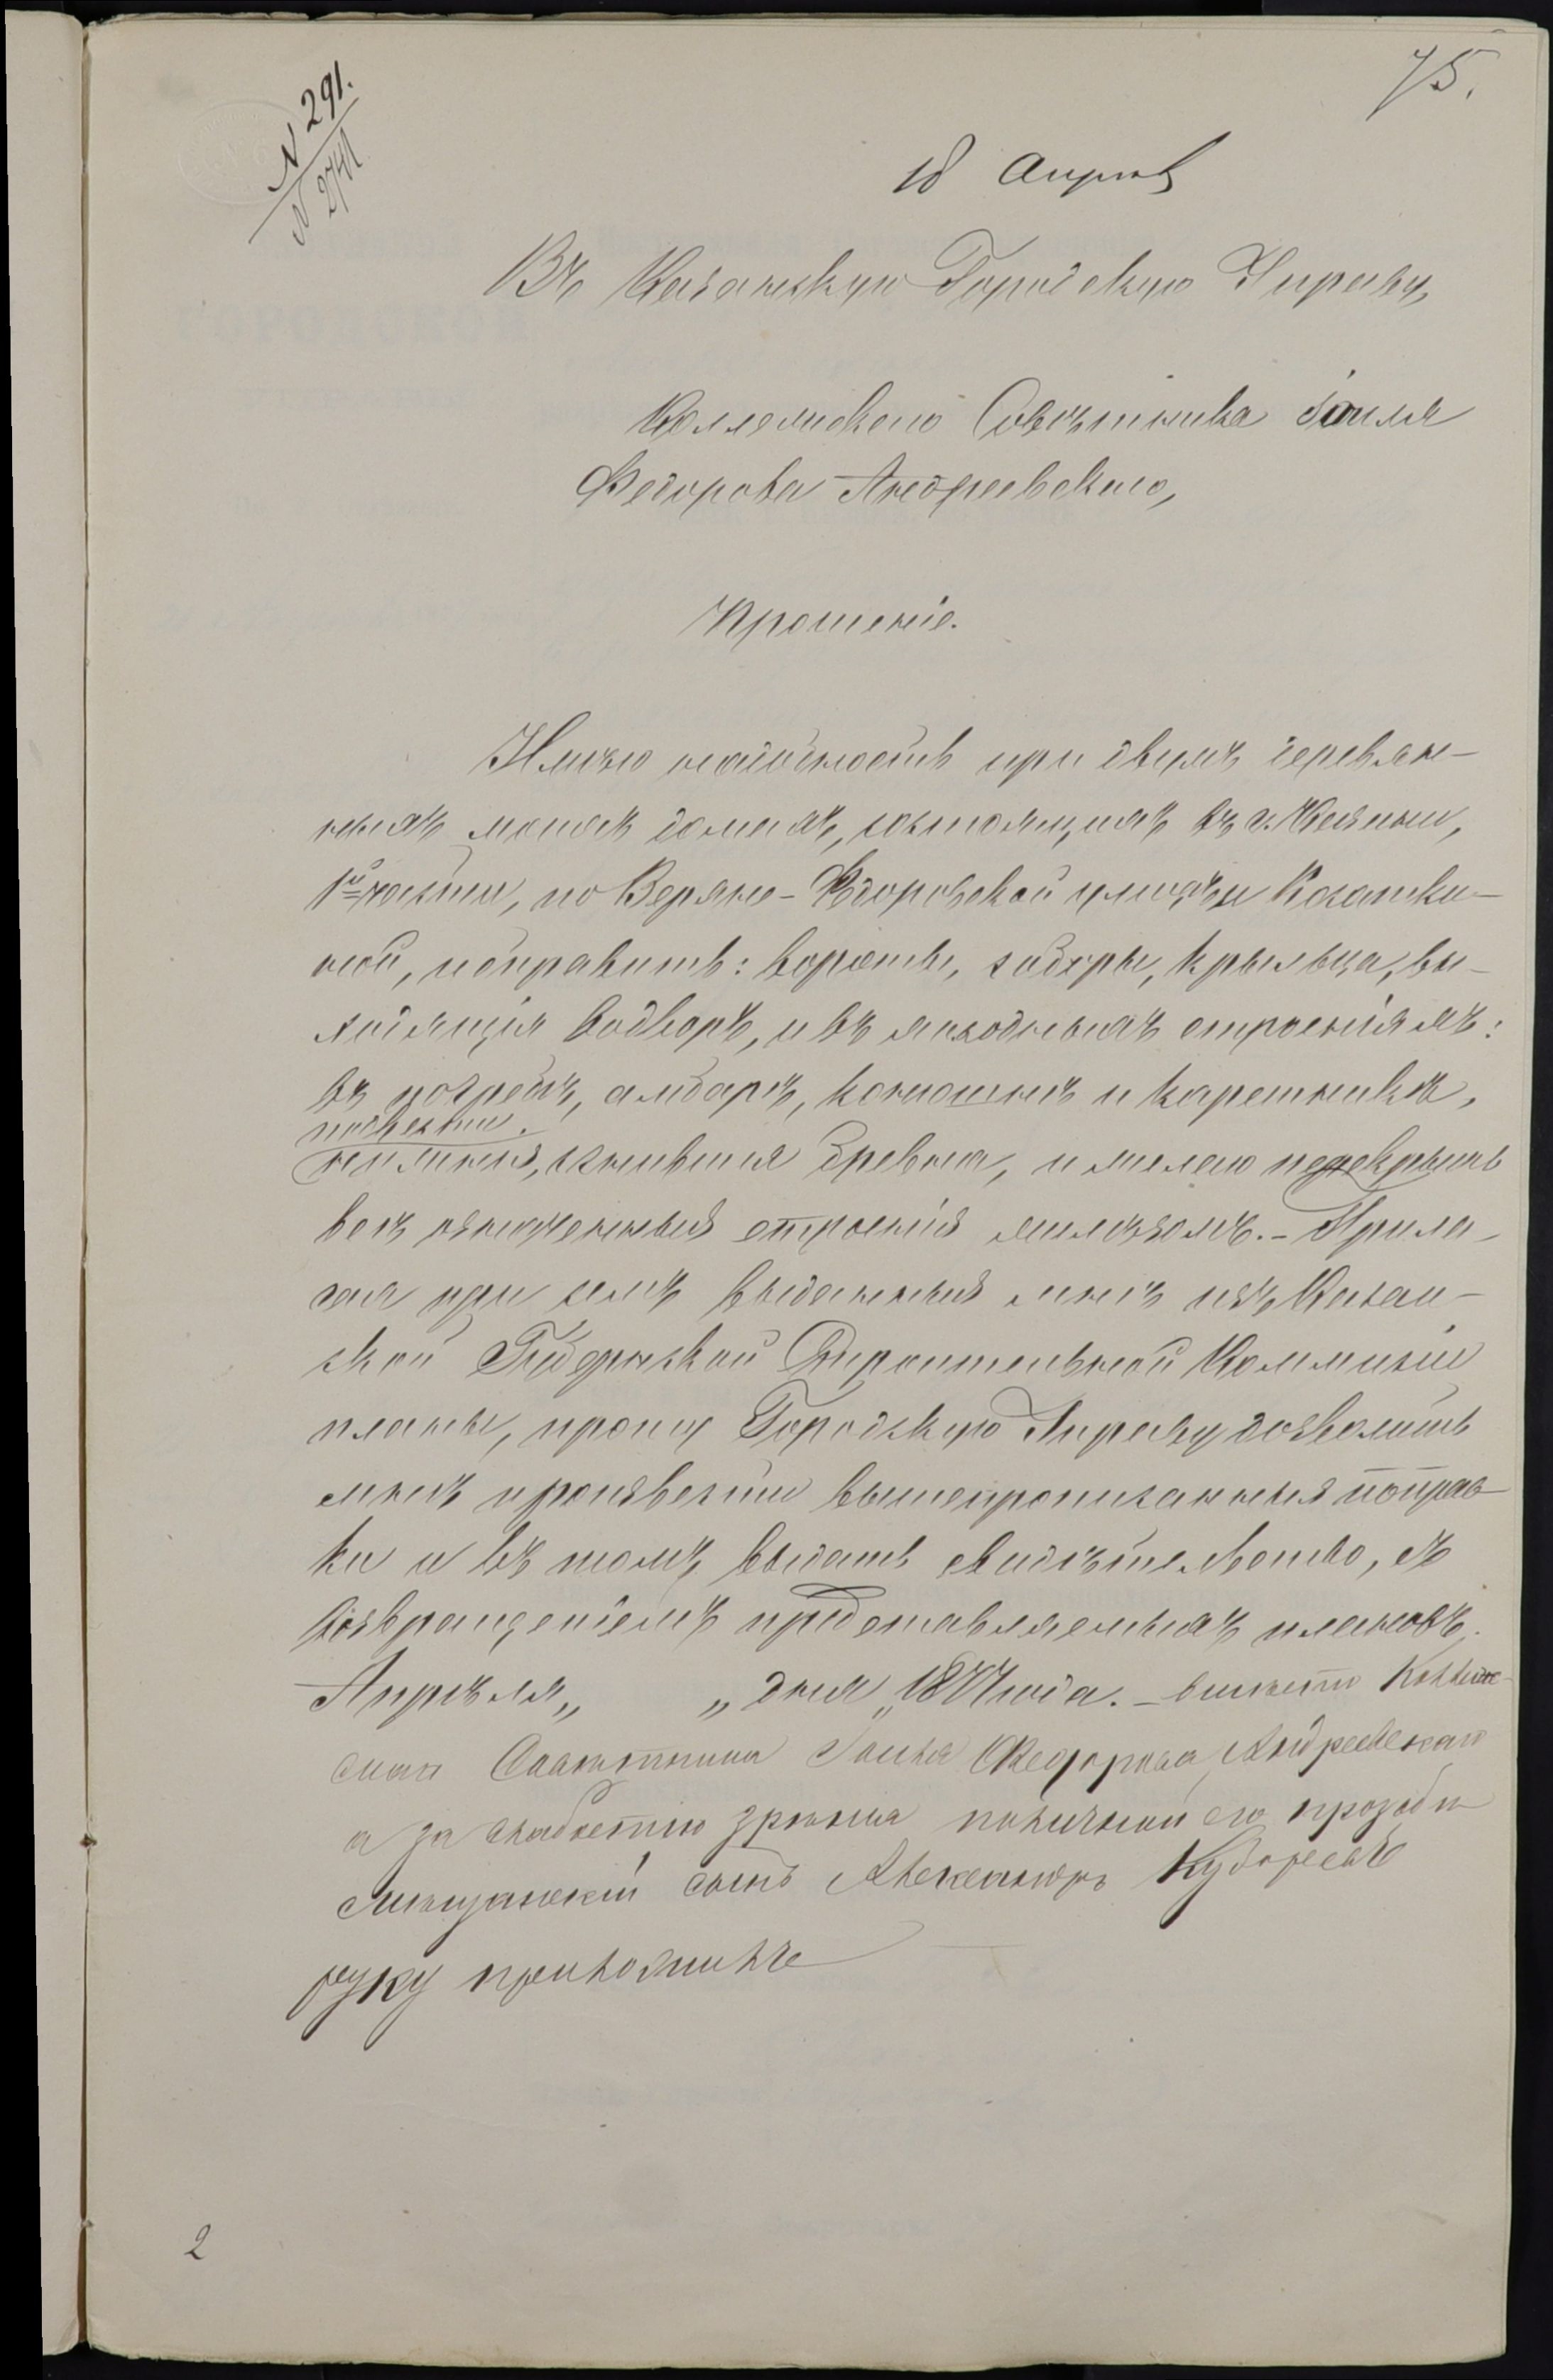 75.
N 291.
N 2741
18 Апреля
Въ Казанскую Городскую Управу,
Коллежскаго Советника Іоиля
Федорова Андреевскаго,
Прошеніе.
Имѣю надобность при двухъ деревян-
ныхъ моихъ домахъ, состоящихъ въ г. Казани,
1й части, по Верхне-Федоровской улицѣ и Касатки-
ной, исправить: ворота, заборы, крыльца, вы-
ходящія во дворъ, и въ холодныхъ строеніяхъ:
въ погребѣ, амбарѣ, конюшнѣ и каретникѣ,
подвести
нижнія, сгнившія бревна, и желаю перекрыть
всѣ означенныя строенія желѣзомъ. - Прила-
гая при семъ выданныя мнѣ изъ Казан-
ской Губернской Строительной Коммисіи
планы, прошу Городскую Управу дозволить
мнѣ произвести вышепрописанныя поправ-
ки и въ томъ выдать свидѣтельство, съ
возвращеніемъ представляемыхъ плановъ.
Апрѣля „ „ дня 1877 года. - вместо Коллеж-
скаго Советника Іоиля Федорова Андреевскаго
а за слабостию зрения поличной его прозьби
Мещанский сынъ Александръ
руку приложилъ
2